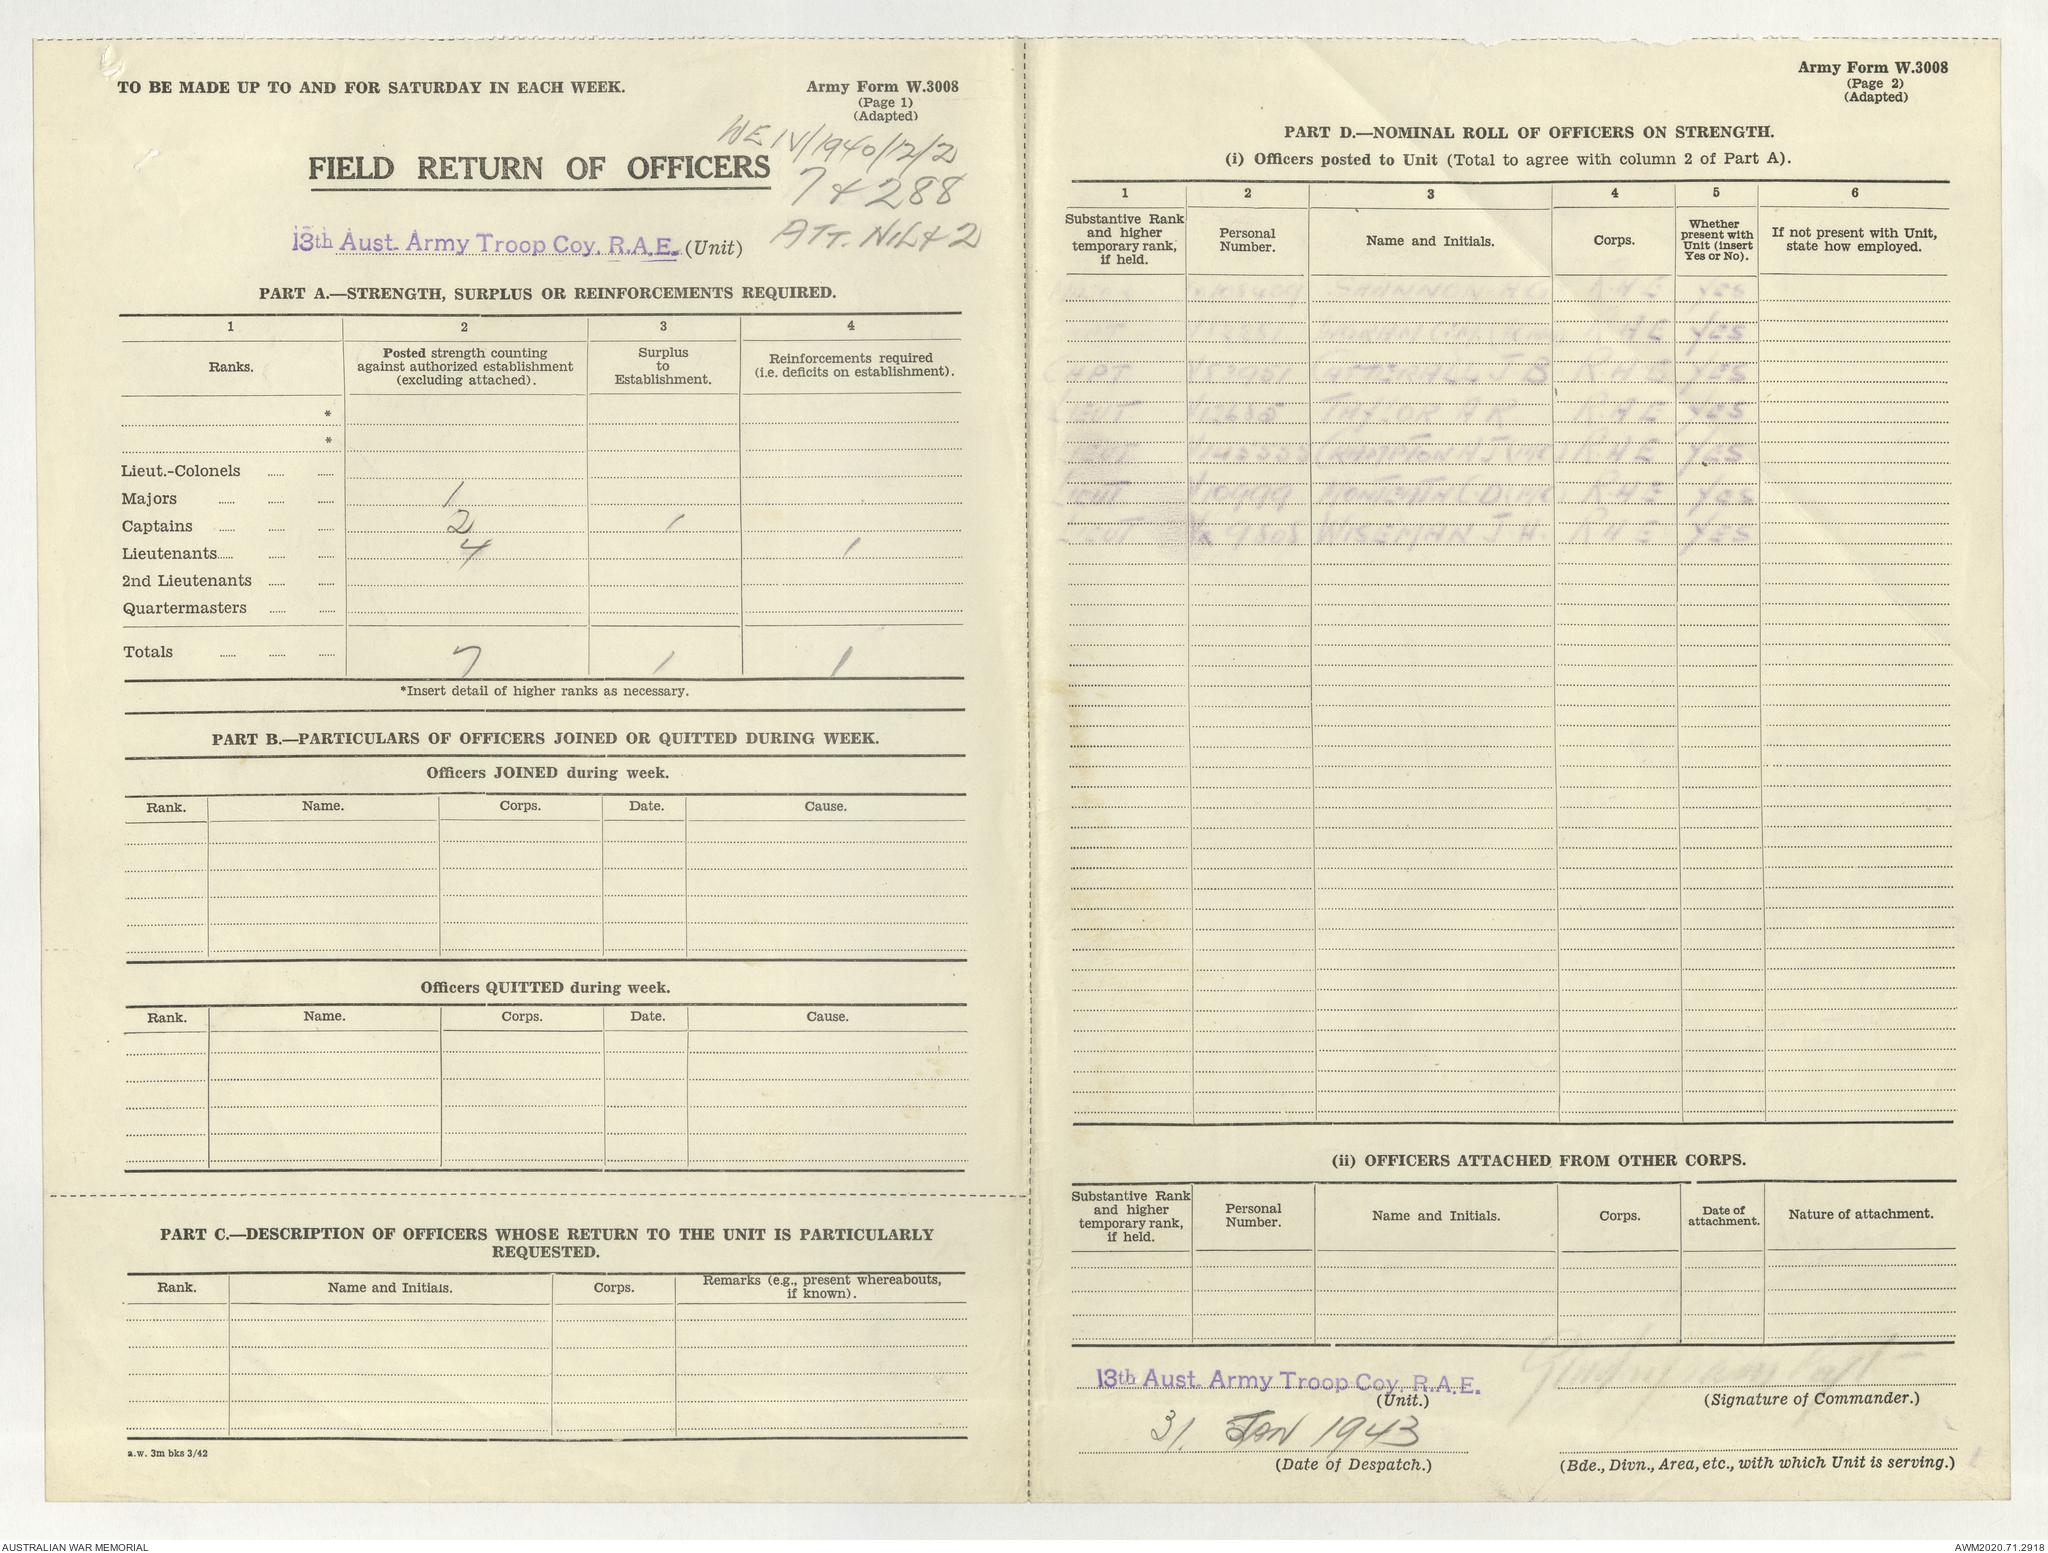 TO BE MADE UP TO AND FOR SATURDAY IN EACH WEEK.
Army Form W.3008
(Page 1)
(Adapted)
WE IV/1940/12/2
7 & 288
ATT. NIL & 2
FIELD RETURN OF OFFICERS
13th Aust. Army Troop Coy. R.A.E. (Unit)
PART A.—STRENGTH, SURPLUS OR REINFORCEMENTS REQUIRED.
1 2 3 4
Ranks.
Posted strength counting
against authorized establishment
(excluding attached).
Surplus
to
Establishment.
Reinforcements required
(i.e. deficits on establishment).
*
*
Lieut.-Colonels
Majors 1
Captains 2 1
Lieutenants 4 1
2nd Lieutenants
Quartermasters
Totals 7 1 1
*Insert detail of higher ranks as necessary.
PART B.—PARTICULARS OF OFFICERS JOINED OR QUITTED DURING WEEK.
Officers JOINED during week.
Rank. Name. Corps. Date. Cause.
Officers QUITTED during week.
Rank. Name. Corps. Date. Cause.
PART C.—DESCRIPTION OF OFFICERS WHOSE RETURN TO THE UNIT IS PARTICULARLY
REQUESTED.
Rank. Name and Initials. Corps. Remarks (e.g., present whereabouts,
if known).
a.w. 3m bks 3/42
Army Form W.3008
(Page 2)
(Adapted)
PART D.—NOMINAL ROLL OF OFFICERS ON STRENGTH.
(i) Officers posted to Unit (Total to agree with column 2 of Part A).
1 2 3 4 5 6
Substantive Rank
and higher
temporary rank,
if held.
Personal
Number.
Name and Initials.
Corps.
Whether
present with
Unit (insert
Yes or No).
If not present with Unit,
state how employed.
SHANNON R.A.E Yes
R A E Yes
CAPT J B R A E Yes
LIEUT TAYLOR A R R.A E Yes
LIEUT CRAMPTON R.A E Yes
LIEUT R.A E Yes
LIEUT WISEMAN J. H. R A E Yes
(ii) OFFICERS ATTACHED FROM OTHER CORPS.
Substantive Rank
and higher
temporary rank,
if held.
Personal
Number.
Name and Initials.
Corps.
Date of
attachment.
Nature of attachment.
13th Aust. Army Troop Coy. R.A.E.
(Unit.)
(Signature of Commander.)
31. JAN 1943
(Date of Despatch.)
(Bde., Divn., Area, etc., with which Unit is serving.)
AUSTRALIAN WAR MEMORIAL
AWM2020.71.2918